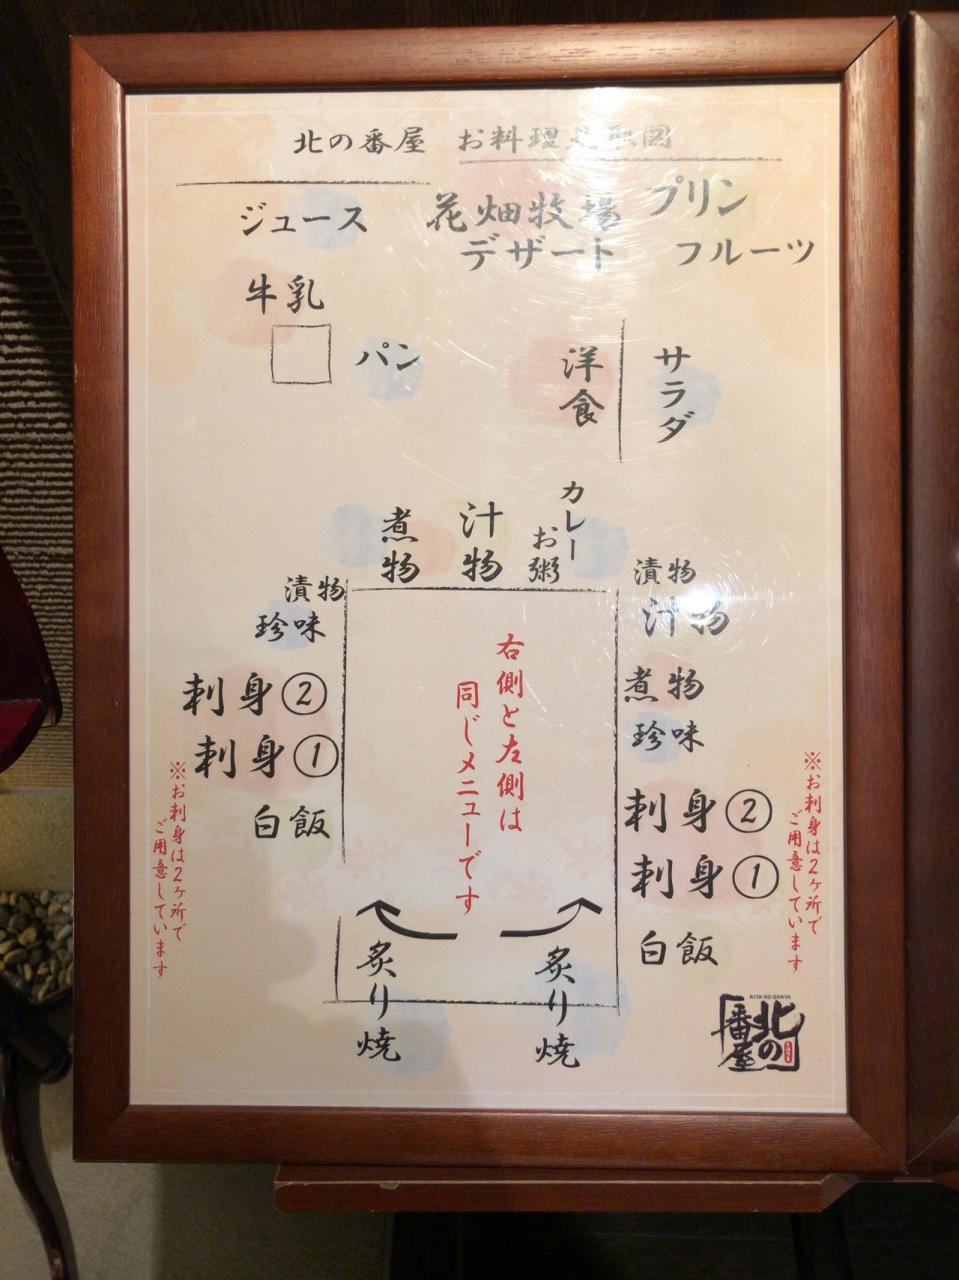 北の番屋 お料理
ジュース
花畑牧場
デザート
プリン
フルーツ
牛乳
パン
洋食
サラダ
煮物
汁物
カレー
お粥
漬物
珍味
刺身②
刺身①
白飯
漬物
汁物
煮物
珍味
刺身②
刺身①
白飯
右側と左側は
同じメニューです
※お刺身は2ヶ所で
ご用意しています
※お刺身は2ヶ所で
ご用意しています
炙り焼
炙り焼
KITA NO BANYA
北の
番屋